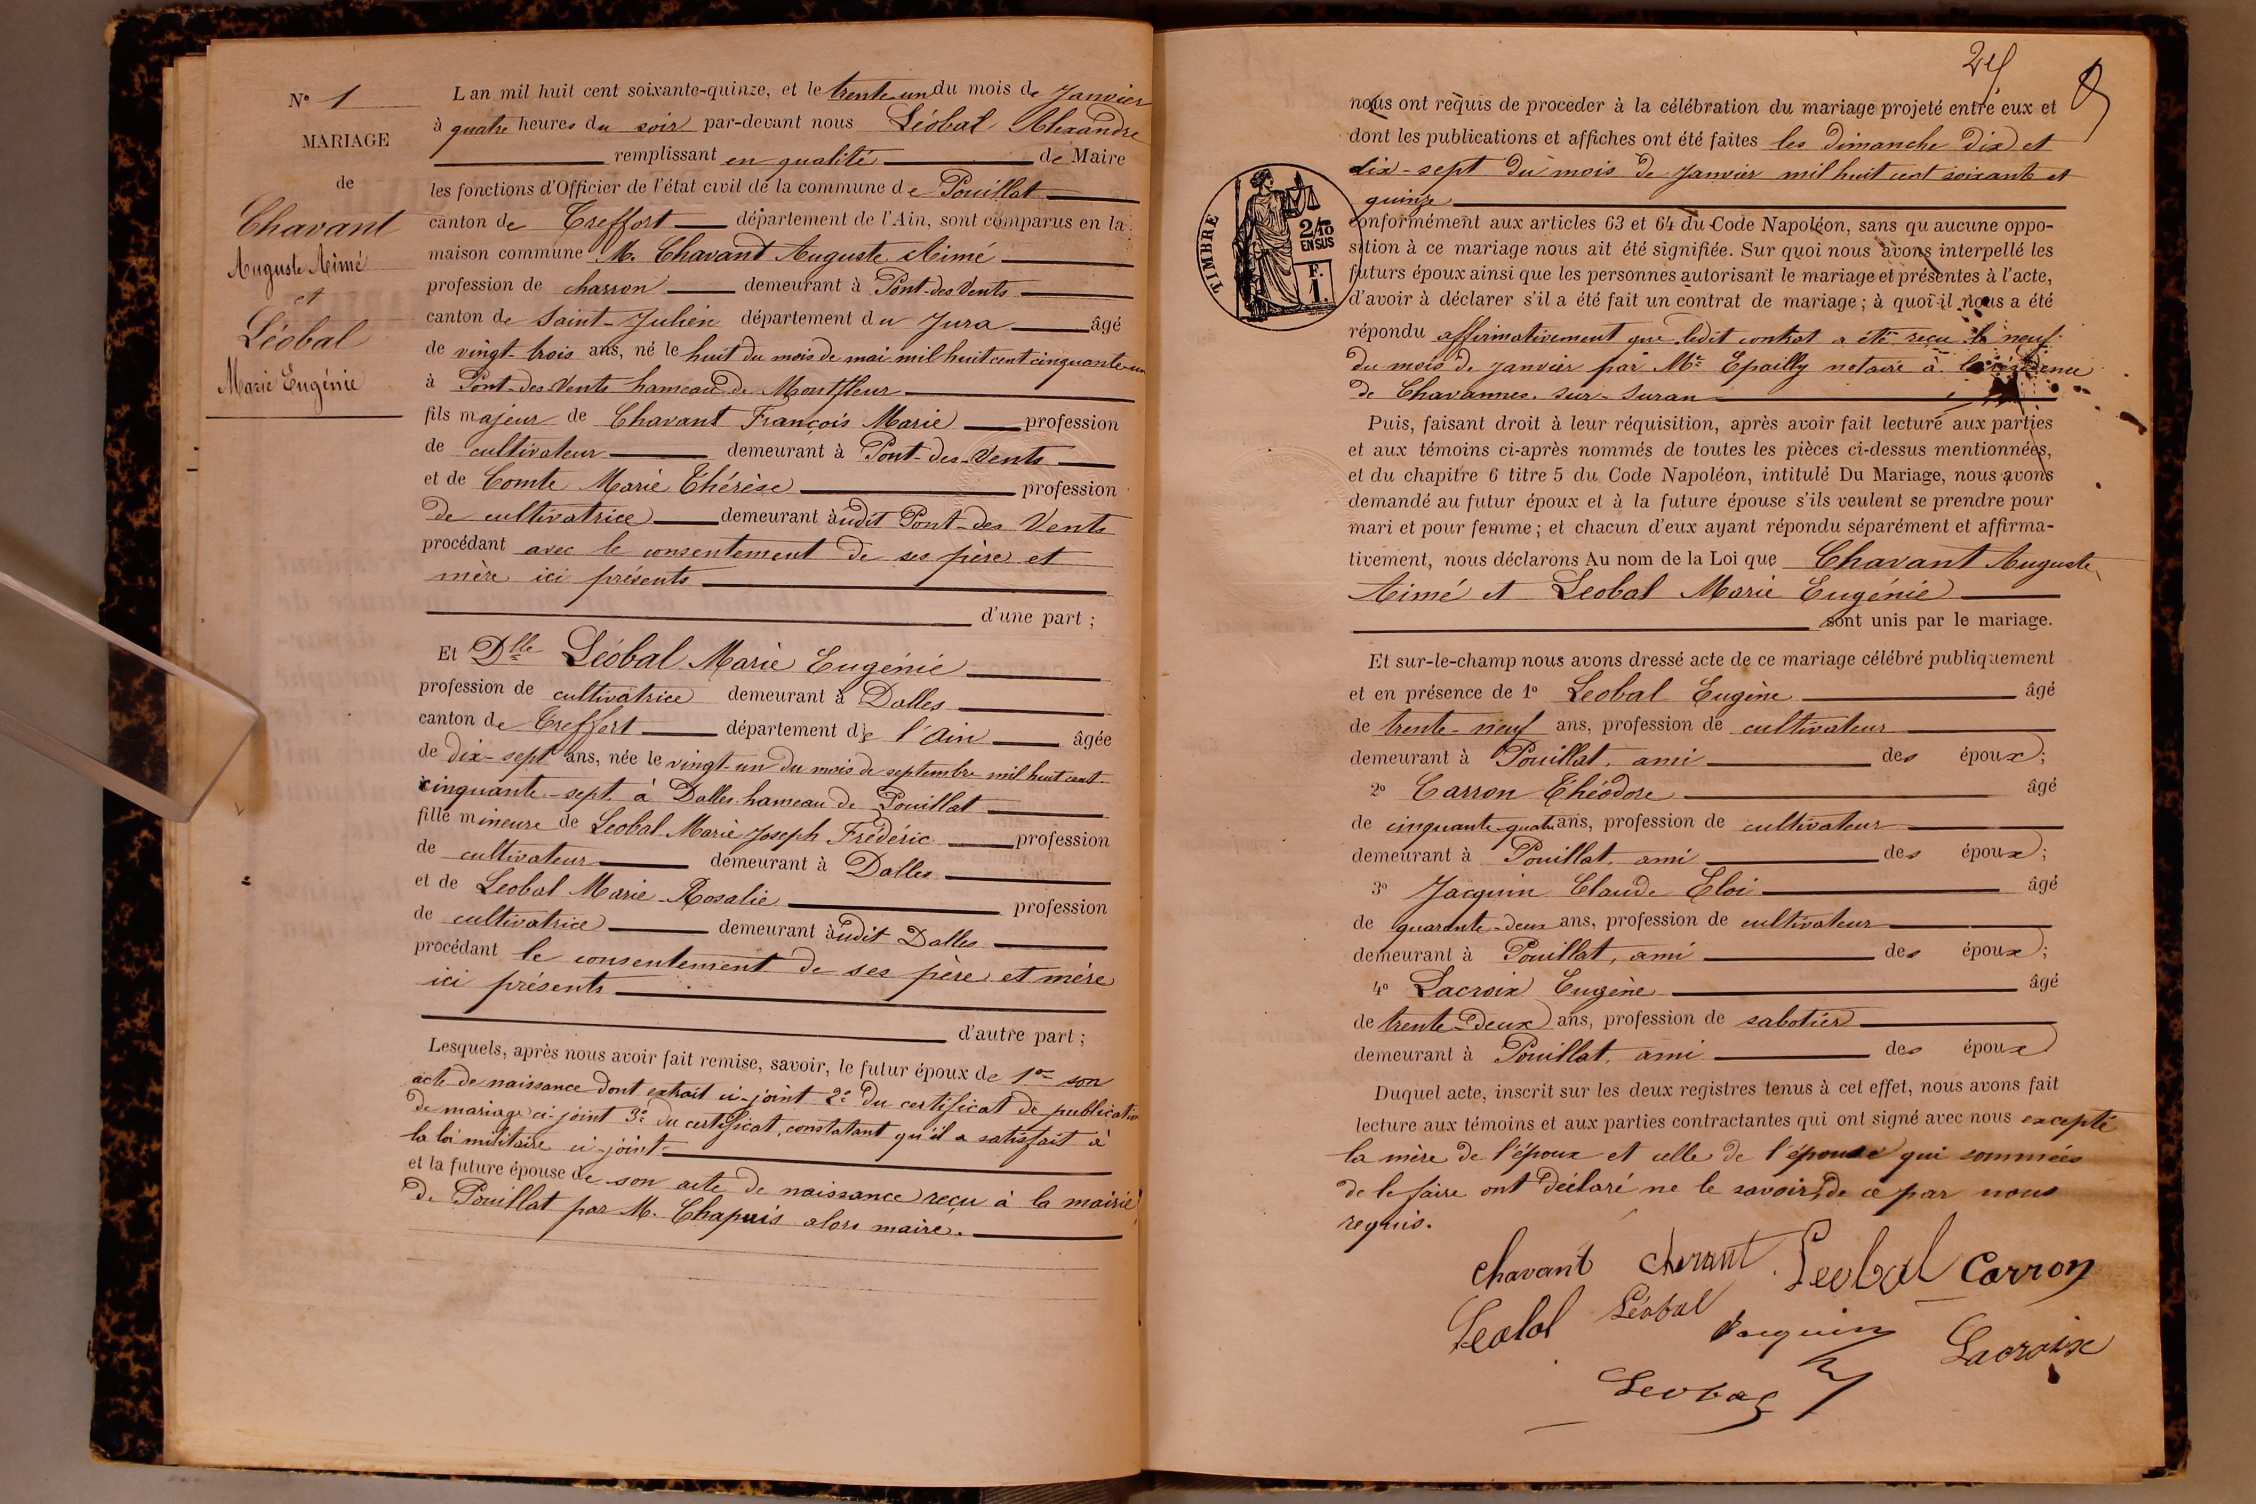 N° 1
MARIAGE
de
Chavant
Auguste Aimé
et
Léobal
Marie Eugénie
L'an mil huit cent soixante-quinze, et le trente-un du mois de Janvier
à quatre heures du soir par-devant nous Léobal Alexandre
remplissant en qualité de Maire
les fonctions d'Officier de l'état civil de la commune de Pouillat
canton de Treffort département de l'Ain, sont comparus en la
maison commune M. Chavant Auguste Aimé
profession de charron demeurant à Pont-des-Vents
canton de Saint-Julien département du Jura âgé
de vingt-trois ans, né le huit du mois de mai mil huit cent cinquante-un
à Pont-des-Vents hameau de Montfleur
fils majeur de Chavant François Marie profession
de cultivateur demeurant à Pont-des-Vents
et de Comte Marie Thérèse profession
de cultivatrice demeurant àudit Pont-des Vents
procédant avec le consentement de ses père et
mère ici présents
d'une part ;
Et Dlle Léobal Marie Eugénie
profession de cultivatrice demeurant à Dalles
canton de Treffort département de l'Ain âgée
de dix-sept ans, née le vingt-un du mois de septembre mil huit cent
cinquante-sept à Dalles hameau de Pouillat
fille mineure de Leobal Marie Joseph Frédéric profession
de cultivateur demeurant à Dalles
et de Leobal Marie-Rosalie profession
de cultivatrice demeurant àudit Dalles
procédant le consentement de ses père et mère
ici présents
d'autre part ;
Lesquels, après nous avoir fait remise, savoir, le futur époux de 1er son
acte de naissance dont extrait ci-joint 2° du certificat de publication
de mariage ci-joint 3° du certificat, constatant qu'il a satisfait à
la loi militaire ci-joint
et la future épouse de son acte de naissance reçu à la mairie
de Pouillat par M. Chapuis alors maire.
24
TIMBRE
2/10
EN SUS
F.
1.
nous ont requis de procéder à la célébration du mariage projeté entre eux et
dont les publications et affiches ont été faites les dimanche dix et
dix-sept du mois de janvier mil huit cent soixante et
quinze
conformément aux articles 63 et 64 du Code Napoléon, sans qu'aucune oppo-
sition à ce mariage nous ait été signifiée. Sur quoi nous avons interpellé les
futurs époux ainsi que les personnes autorisant le mariage et présentes à l'acte,
d'avoir à déclarer s'il a été fait un contrat de mariage ; à quoi il nous a été
répondu affirmativement que ledit contrat a été reçu le neuf
du mois de janvier par Me Epailly notaire à la résidence
de Chavannes-sur-Suran
Puis, faisant droit à leur réquisition, après avoir fait lecture aux parties
et aux témoins ci-après nommés de toutes les pièces ci-dessus mentionnées,
et du chapitre 6 titre 5 du Code Napoléon, intitulé Du Mariage, nous avons
demandé au futur époux et à la future épouse s'ils veulent se prendre pour
mari et pour femme ; et chacun d'eux ayant répondu séparément et affirma-
tivement, nous déclarons Au nom de la Loi que Chavant Auguste
Aimé et Leobal Marie Eugénie
sont unis par le mariage.
Et sur-le-champ nous avons dressé acte de ce mariage célébré publiquement
et en présence de 1° Leobal Eugène âgé
de trente-neuf ans, profession de cultivateur
demeurant à Pouillat, ami des époux ;
2° Carron Théodore âgé
de cinquante-quatre ans, profession de cultivateur
demeurant à Pouillat, ami des époux ;
3° Jacquin Claude Eloi âgé
de quarante-deux ans, profession de cultivateur
demeurant à Pouillat, ami des époux ;
4° Lacroix Eugène âgé
de trente-deux ans, profession de sabotier
demeurant à Pouillat, ami des époux
Duquel acte, inscrit sur les deux registres tenus à cet effet, nous avons fait
lecture aux témoins et aux parties contractantes qui ont signé avec nous excepté
la mère de l'époux et celle de l'épouse qui sommées
de le faire ont déclaré ne le savoir, de ce par nous
requis.
Chavant Chavant Leobal Carron
Leobal Léobal Jacquin Lacroix
Leobal